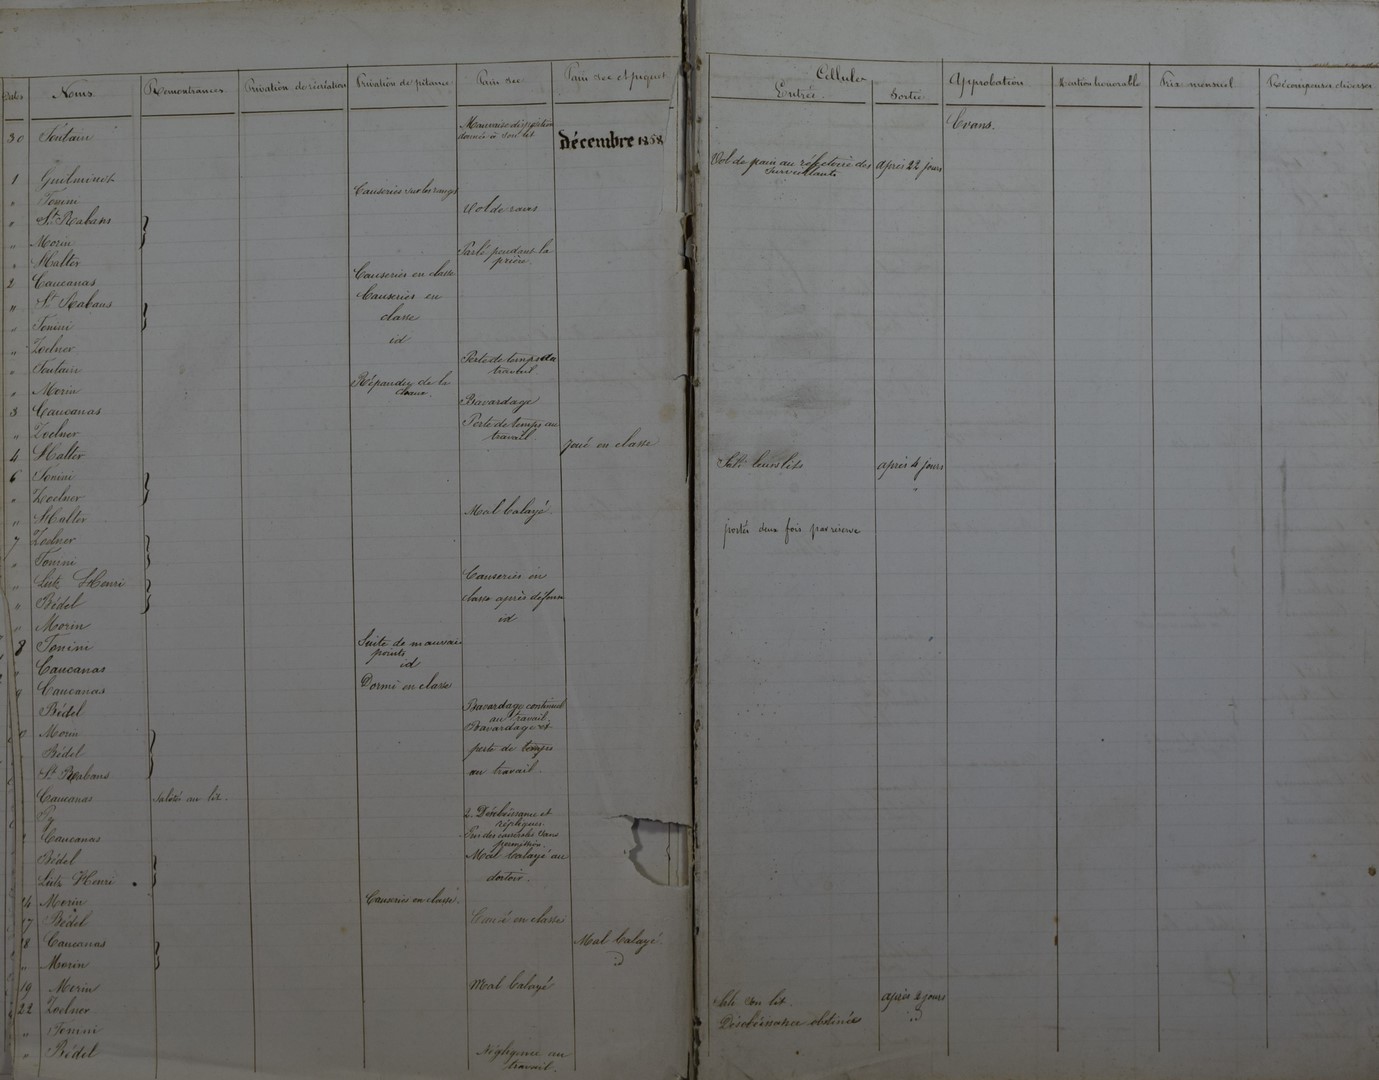 Dates Noms Remontrances Privation de récréation Privation de pitance Pain sec Pain sec et piquet Cellule Entrée Sortie Approbation Mention honorable Prix mensuel Récompenses diverses
30 Toutain Mauvaise disposition Evans.
donnée à
Décembre 1858
1 Guilminot Vol de pain au réfectoire des surveillants après 22 jours
" Tonini Causeries sur les rangs
" St Rabans Vol de raves
" Morin
" Malter Parlé pendant la prière.
2 Caucanas Causeries en classe
" St Rabans Causeries en
" Tonini classe
" Zoelner id
" Toutain Perte de temps au travail.
" Morin Répandu de la
3 Caucanas Bavardage
" Zoelner Perte de temps au travail.
4 Malter Joué en classe
6 Tonini Sali leurs lits après 4 jours
" Zoelner "
" Malter Mal balayé.
7 Zoelner portés deux fois par réserve
" Tonini
" Lutz Henri Causeries en
" Bédel classe après défense
" Morin id
8 Tonini Suite de mauvais points
" Caucanas id
9 Caucanas Dormi en classe
Bédel Bavardage continuel au travail
Morin Bavardage et
Bédel perte de temps
St Rabans au travail
Caucanas saletés au lit.
2. Désobéissance et répliques.
Caucanas sans permission.
Bédel Mal balayé au
Lutz Henri dortoir.
14 Morin Causeries en classe.
17 Bédel en classe
18 Caucanas Mal balayé.
" Morin
19 Morin Mal balayé
22 Zoelner Sali son lit. après 2 jours
" Tonini Désobéissance obstinée
" Bédel Négligence au travail.